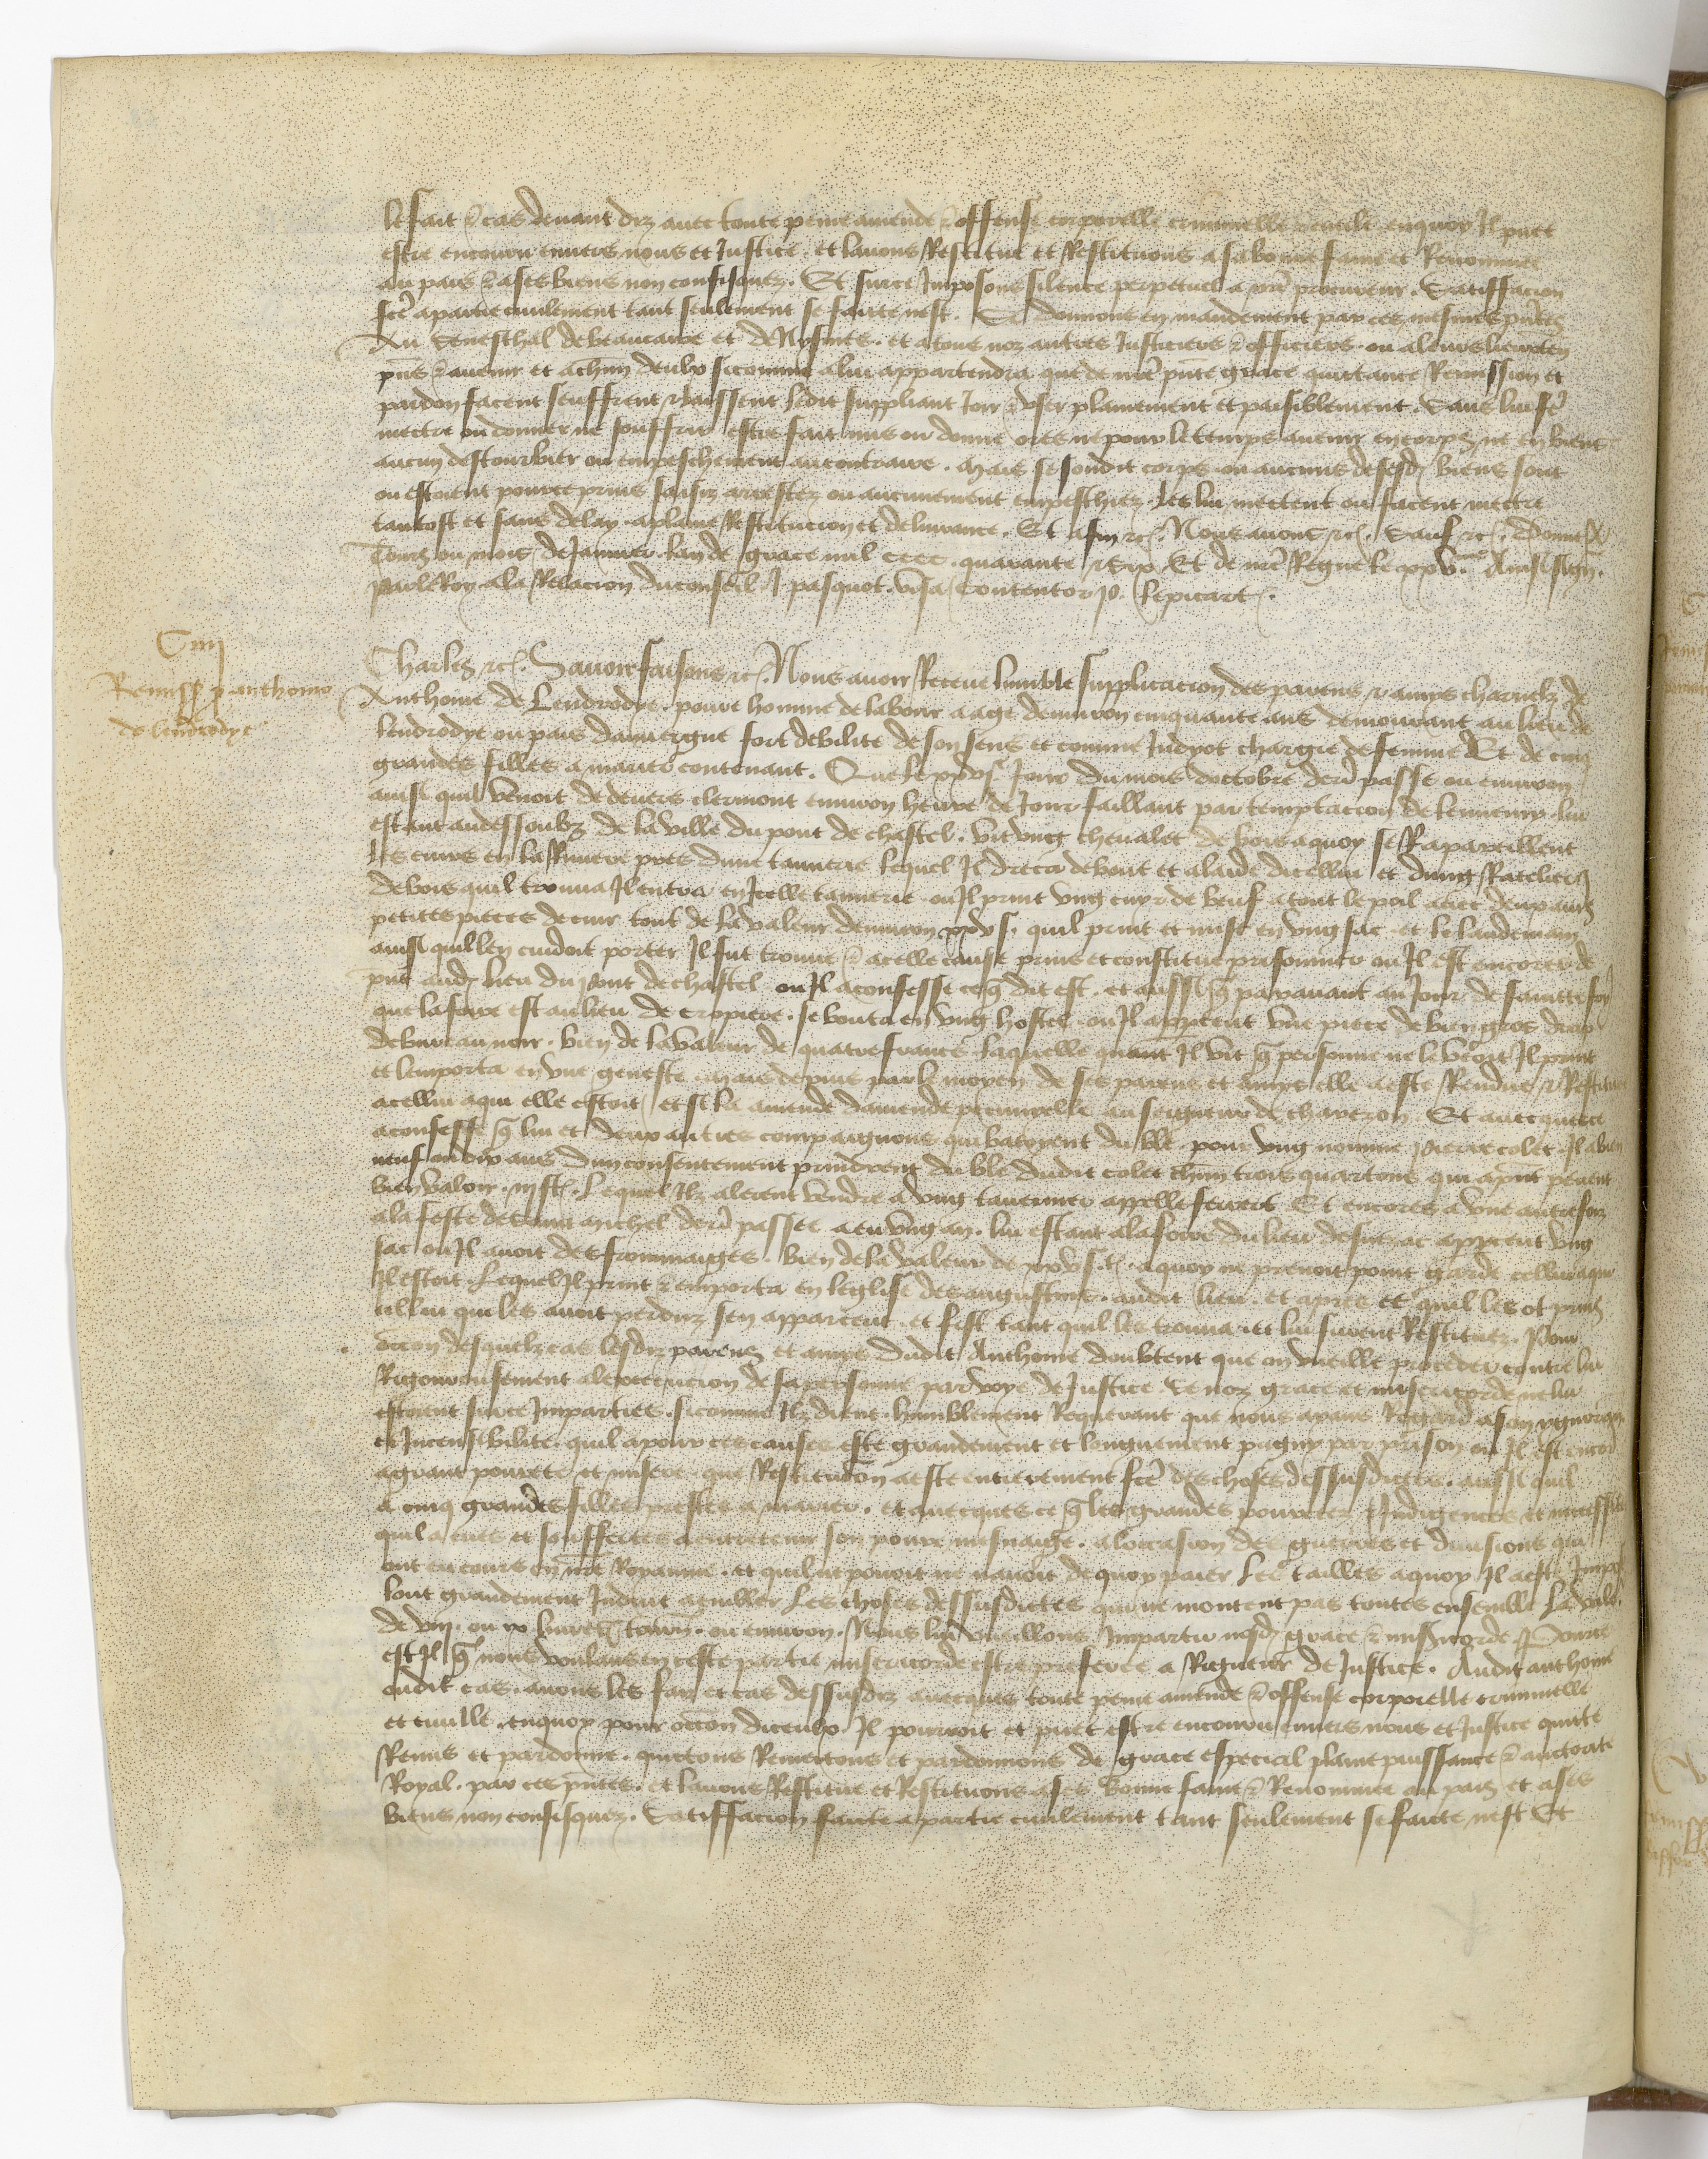 le fait & cas devant diz avec toute peine amende & offense corporelle criminelle & civile enquoy Il puet
estre encouru envers nous et Justice . et lavons Restitue et Restituons a sa bonne fame et Renommee
au pais & a ses biens non confisquez . Et surce Imposons silence perpetuel a nr̃e procureur . Satisffacion
fcẽ a partie civilement tant seulement se faicte nest . Si donnons en mandement par ces mesmes pñtes
Au Seneschal de beaucaire et de Nysmes . et a tous noz autres Justiciers & officiers . ou a leurs lieuxten̄
pñs & avenir et a chũn deulx sicomme a lui appartendra que de nr̃e pñte grace quittance Remission et
pardon facent seuffrent & laissent ledit suppliant Joir & user plainement et paisiblement . Sans lui fẽ
mectre ou donner ne souffrir estre fait mis ou donne ores ne pour le temps avenir en corps ne en biens
aucun destourbier ou empeschement au contraire . Mais se sondit corps ou aucuns de sesd. biens sont
ou estoient pource prins saisiz arrestez ou aucunement empeschiez . les lui mectent ou facent mectre
tantost et sans delay a plaine Restitucion et delivrance . Et afin &c. Nous avons &c. Sauf &c. Donne a
Tours ou mois de Janvier . lan de grace mil cccc . quarante & six Et de nr̃e Regne le xxv.e Ainsi sign.
Par le Roy a la Relacion du conseil J pasquot . visa Contentor P. le picart .
Ciiij
Remiss. p anthoine
de lendrodye
Charles &c. Savoir faisons &c. Nous avoir Receue lumble supplicacion des parens & amys charnelz de
Anthoine de Lendrodye . povre homme de labour aage denviron cinquante ans demourant au lieu de
lendrodye ou pais dauvergne fort debilite de son sens et comme Indyot chargie de femme Et de cinq
grandes filles a marier contenant . Que le xxvj.e Jour du mois doctobre derr̃ passe ou environ
ainsi quil venoit de devers clermont environ heure de Jour faillant par temptacion de lennemy . lui
estant audessoubz de la ville du pont de chastel . vit ung chevalet de bois a quoy se Rapareillent
les cuirs en la Riviere pres dune tannerie lequel Il dreca debout et a laide dicellui et dung Ratelier
de bois quil trouva Il entra en Icelle tannerie . ou Il print ung cuyr de beuf a tout le poil avec deux aut̃s
petites pieces de cuir tout de la valeur denviron xxv s. quil print et mist en ung sac et le landemain
ainsi quil len cuidoit porter Il fut trouve & a celle cause prins et constitue prisonnier ou Il est encores de
pñt aud. lieu du pont de chastel ou Il a confesse ce q̃ dit est . et aussi q̃ paravant au Jour de saincte foy
que la foire est au lieu de cropiere . se bouta en ung hostel . ou Il apperceut une piece de bien gros drap
de bureau noir . bien de la valeur de quatre francs . laquelle quant Il vit q̃ personne ne le veoit Il print
et lemporta en une geneste . Mais depuis par le moyen de ses parens et amys elle a este Rendue & Restituee
a cellui a qui elle estoit / et si la amende damende pecunielle au seigneur de chaveron . Et avecques ce
a confesse q̃ lui et deux autres compaignons qui batoyent du ble . pour ung nomme pierre colet Il a bien
neuf ou dix ans dun consentement prindrent du ble dudit colet chũn trois quartons qui a pñt pevent
bien valoir . iij fr. lequel Ilz alerent vendre a ung tavernier appelle severt Et encores a une autre foiz
a la feste de saint Michel derr̃ passee a eu ung an . lui estant a la foire du lieu de apperceut ung
sac ou Il avoit des frommaiges . bien de la valeur de xxv s. t. a quoy ne prenoit point garde cellui a qui
Il estoit . lequel Il print & emporta en leglise des augustins . audit lieu . et apres ce quil les ot prins
cellui qui les avoit perduz sen apperceut . et fist tant quil les trouva . et lui furent Restituez . Pour
occon̄ desquelz cas lesdiz parens et amys Dudit Anthoine doubtent que on vueille proceder contre lui
Rigoureusement a lexecucion de sa personne par voye de Justice . Se noz grace et misericorde ne lui
estoient surce Imparties . sicomme Ilz dient . humblement Requerant que nous ayans Regard a son ygnorance
et Incensibilite . quil a pour ces causes este grandement et longuement pugny par prison ou Il est encor̃
a grant povrete et misere que Restitucion a este entierement fcẽ des choses dessusdictes . aussi quil
a cinq grandes filles prestes a marier . et avecques ce q̃ les grandes povretez Indigences et necessitez
quil a eues et souffertes a entretenir son povre mesnaige . a loccasion des guerres et divisions qui
ont eu cours en nr̃e Royaume . et quil ne povoit ne navoit de quoy paier les tailles a quoy Il a este Impose
lont grandement Induit a embler les choses dessusdictes qui ne montent pas toutes ensemble la valeur
de viij . ou x livres tourn̄ . ou environ . Nous lui vueillons Impartir nosd. grace & misericorde . Pource
est Il q̃ nous voulans en ceste partie misericorde estre preferee a Rigueur de Justice . Audit anthoine
oudit cas . avons les faiz et cas dessusdiz avecques toute peine amende & offense corporelle criminelle
et civille . enquoy pour occon̄ diceulx . Il pourroit et puet estre encouru envers nous et Justice quitte
Remis et pardonne . quictons Remectons et pardonnons de grace especial plaine puissance & auctorite
Royal . par ces pñtes . et lavons Restitue et Restituons a ses bonne fame & Renommee au pais et a ses
biens non confisquez . Satisffacion faicte a partie civilement tant seulement se faicte nest Et